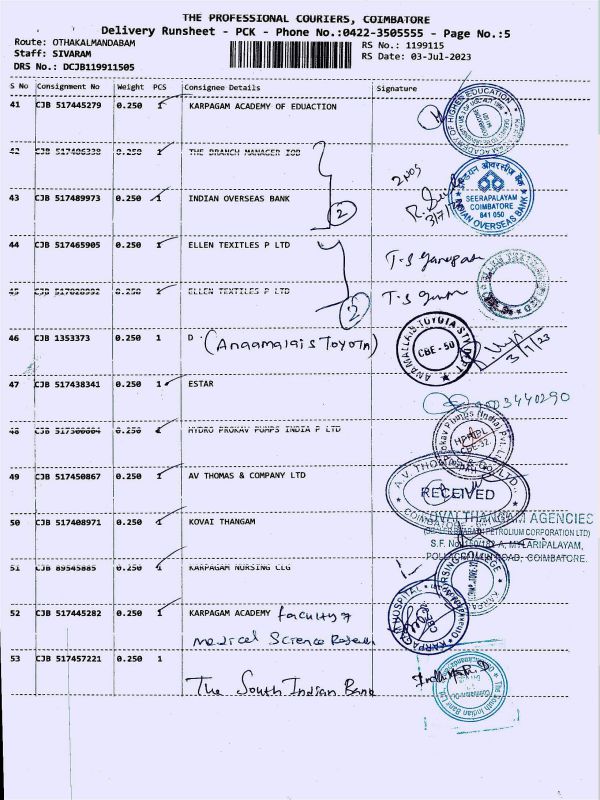 THE PROFESSIONAL COURIERS, COIMBATORE
Delivery Runsheet - PCK - Phone No.:0422-3505555 - Page No.:5
Route: OTHAKALMANDABAM
RS No.: 1199115
Staff: SIVARAM
RS Date: 03-Jul-2023
DRS No.: DCJB119911505
S No Consignment No Weight PCS Consignee Details Signature
41 CJB 517445279 0.250 1 KARPAGAM ACADEMY OF EDUACTION
42 CJB 517486338 0.250 1 THE BRANCH MANAGER IOB
2NOS
43 CJB 517489973 0.250 1 INDIAN OVERSEAS BANK
2
3/7/
இந்தியன் ओवरसीज़ बैंक
SEERAPALAYAM
COIMBATORE
841 050
INDIAN OVERSEAS BANK
44 CJB 517465905 0.250 1 ELLEN TEXITLES P LTD
45 CJB 0.250 1 ELLEN TEXTILES P LTD
2
46 CJB 1353373 0.250 1 D (Anaamalais TOYOTA)
ANAMALLAIS TOYOTA
CBE - 50
3/7/23
47 CJB 517438341 0.250 1 ESTAR
9003440290
48 CJB 517500604 0.250 1 HYDRO PROKAV PUMPS INDIA P LTD
Prokav Pumps (India) Pvt. Ltd
49 CJB 517450867 0.250 1 AV THOMAS & COMPANY LTD
A.V. THOMAS & CO. LTD.,
RECEIVED
COIMBATORE
50 CJB 517408971 0.250 1 KOVAI THANGAM
KOVAI THANGAM AGENCIES
PETROLIUM CORPORATION LTD)
MYLARIPALAYAM,
ROAD, COIMBATORE.
51 CJB 89545885 0.250 1 KARPAGAM NURSING CLG
NURSING COLLEGE
52 CJB 517445282 0.250 1 KARPAGAM ACADEMY faculty of
Medical Science Research
KARPAGAM HOSPITAL
53 CJB 517457221 0.250 1
The South Indian Bank
The South Indian Bank Ltd